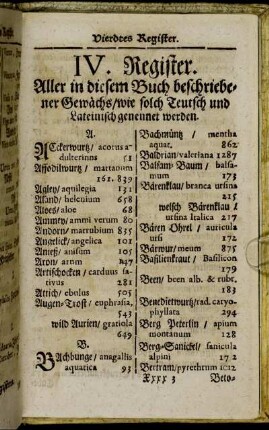 Vierdtes Register.
IV. Register.
Aller in diesem Buch beschriebe-
ner Gewächs/wie solch Teutsch und
Lateinisch genennet werden.
A.
ACkerwurtz/ acorus a-
dulterinus 51
Affodilwurtz/ martanum
161. 839
Agley/ aquilegia 131
Aland/ helenium 658
Aloes/ aloe 68
Ammey/ ammi verum 80
Andorn/ marrubium 835
Angelick/ angelica 101
Aneiß/ anisum 105
Aron/ arum 247
Artischocken/ carduus sa-
tivus 281
Attich/ ebulus 505
Augen-Trost/ euphrasia,
543
wild Aurien/ gratiola
649
B.
BAchbunge/ anagallis
aquatica 93
Bachmüntz/ mentha
aquat. 862
Baldrian/ valeriana 1287
Balsam-Baum/ balsa-
mum 173
Bärenklau/ branca ursina
215
welsch Bärenklau/
ursina Italica 217
Bären Ohrel/ auricula
ursi 172
Bärwur/ meum 875
Basilienkraut/ Basilicon
179
Been/ been alb. & rubr.
183
Benedictwurtz/ rad. caryo-
phyllata 294
Berg Peterlin/ apium
montanum 128
Berg-Sanickel/ sanicula
alpini 172
Bertram/ pyrethrum 1012
Xxxx 3 Beto-